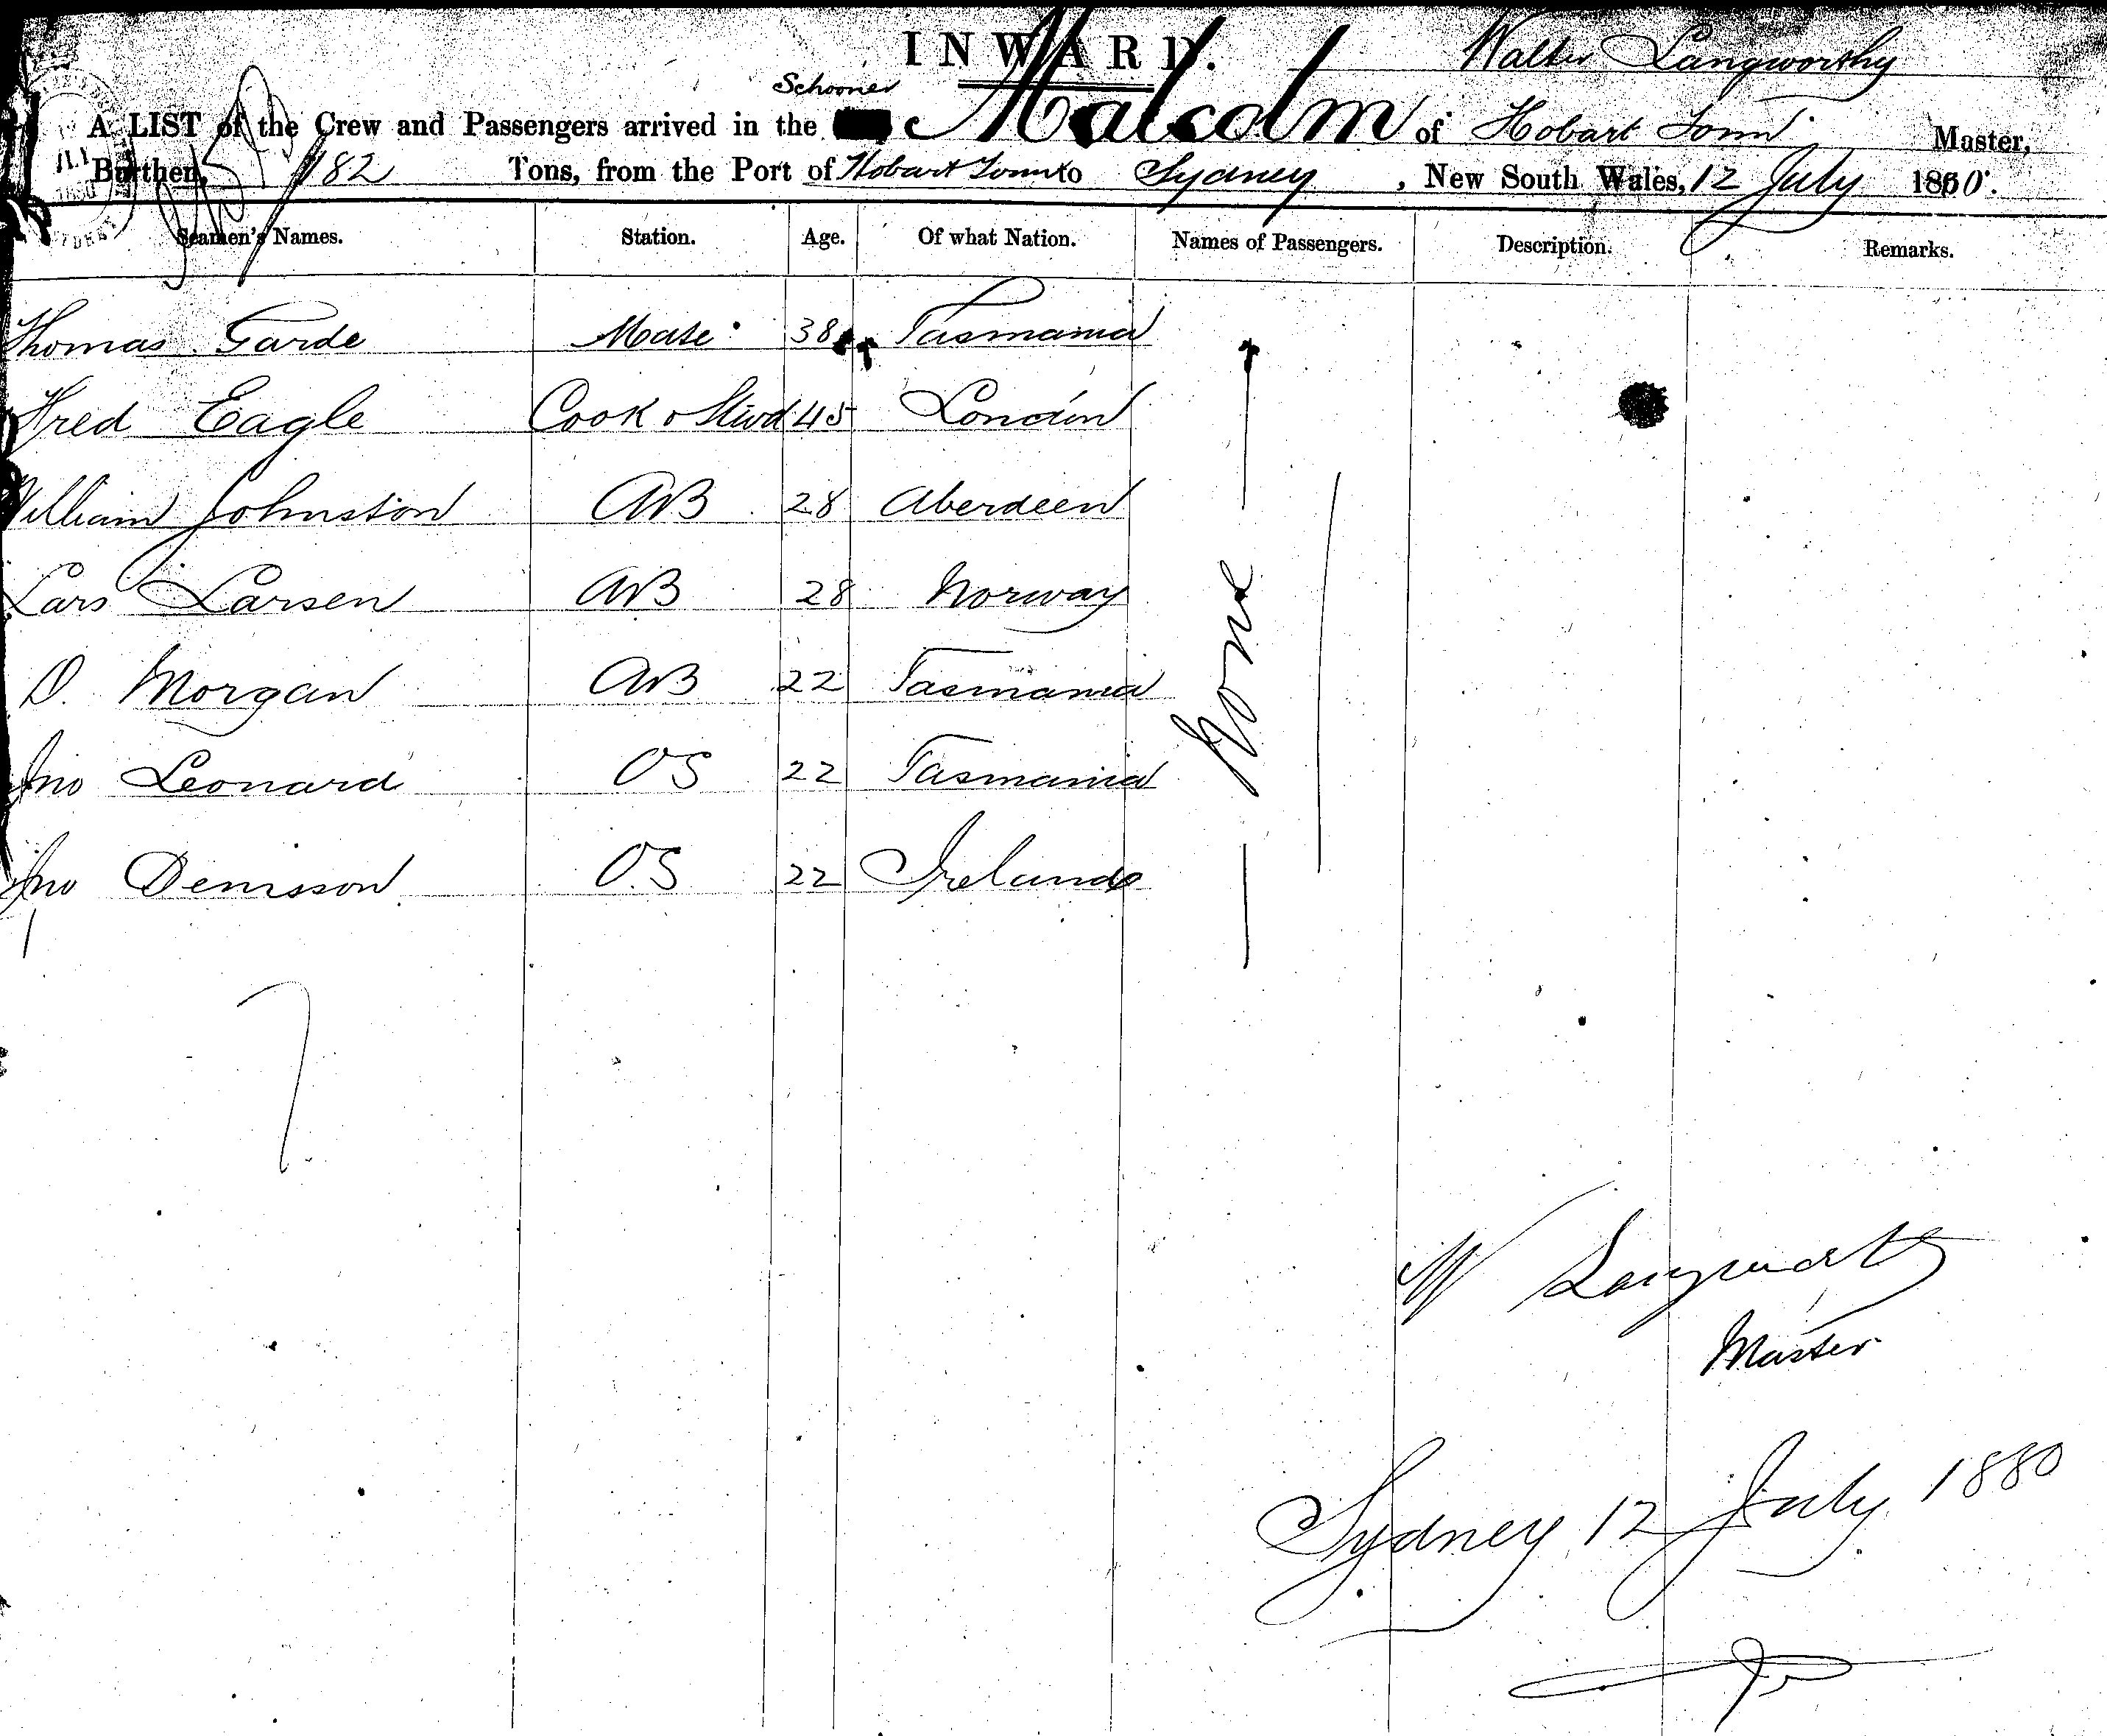 INWARD.
Walter Langworthy
Schooner
A LIST of the Crew and Passengers arrived in the Malcolm of Hobart Town Master,
Burthen, 182 Tons, from the Port of Hobart Town to Sydney, New South Wales, 12 July 1880.
Seamen's Names. Station. Age. Of what Nation. Names of Passengers. Description. Remarks.
Thomas Garde Mate 38 Tasmania
Fred Eagle Cook & Stwd 45 London
William Johnston AB 28 Aberdeen
Lars Larsen AB 28 Norway
D. Morgan AB 22 Tasmania
Jno Leonard OS 22 Tasmania
Jno Denisson O.S 22 Ireland
None
W Langworthy
Master
Sydney 12 July 1880